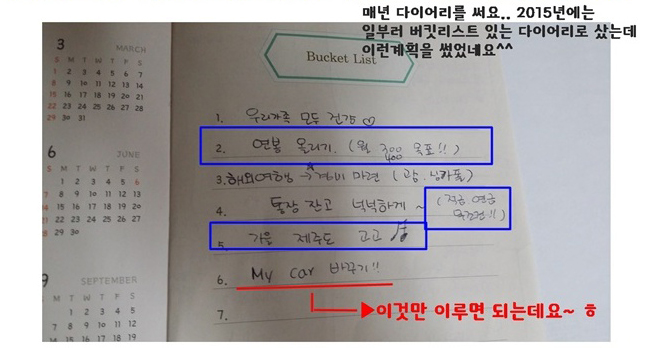 매년 다이어리를 써요.. 2015년에는
일부러 버킷리스트 있는 다이어리로 샀는데
이런계획을 썼었네요^^
3 MARCH
S M T W T F S
1 2 3 4 5 6 7
8 9 10 11 12 13 14
15 16 17 18 19 20 21
22 23 24 25 26 27 28
29 30 31
6 JUNE
S M T W T F S
1 2 3 4 5 6
7 8 9 10 11 12 13
14 15 16 17 18 19 20
21 22 23 24 25 26 27
28 29 30
9 SEPTEMBER
S M T W T F S
1 2 3 4 5
6 7 8 9 10 11 12
13 14 15 16 17 18 19
Bucket List
1. 우리가족 모두 건강 ♡
2. 연봉 올리기. (월 300 목표!!)
400
3. 해외여행 → 경비 마련 (괌.
4. 통장 잔고 넉넉하게 ~ (적금 연금
5. 가을 제주도 고고
6. My car 바꾸기!!
7.
▶이것만 이루면 되는데요~ ㅎ